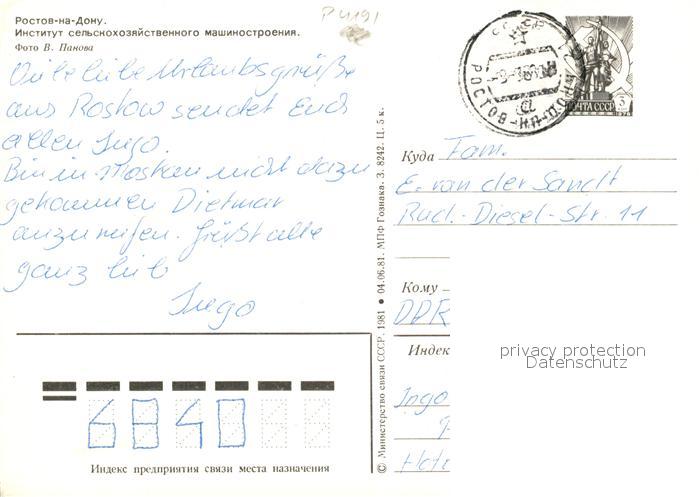 P 4191
Ростов-на-Дону.
Институт сельскохозяйственного машиностроения.
Фото В. Панова
Viele liebe Urlaubsgrüße
aus Rostow sendet Euch
allen Ingo.
Bin in Moskau nicht dazu
gekommen Dietmar
anzurufen. Grüßt alle
ganz lieb
Ingo
СССР
РОСТОВ-Н-Д
ПОЧТА СССР 3
Куда Fam.
E. van der Sandt
Rud.-Diesel-Str. 11
Кому
DDR
Индек
privacy protection
Datenschutz
Ingo
Hote
6840
Индекс предприятия связи места назначения
© Министерство связи СССР, 1981 • 04.06.81. МПФ Гознака. З. 8242. Ц. 5 к.